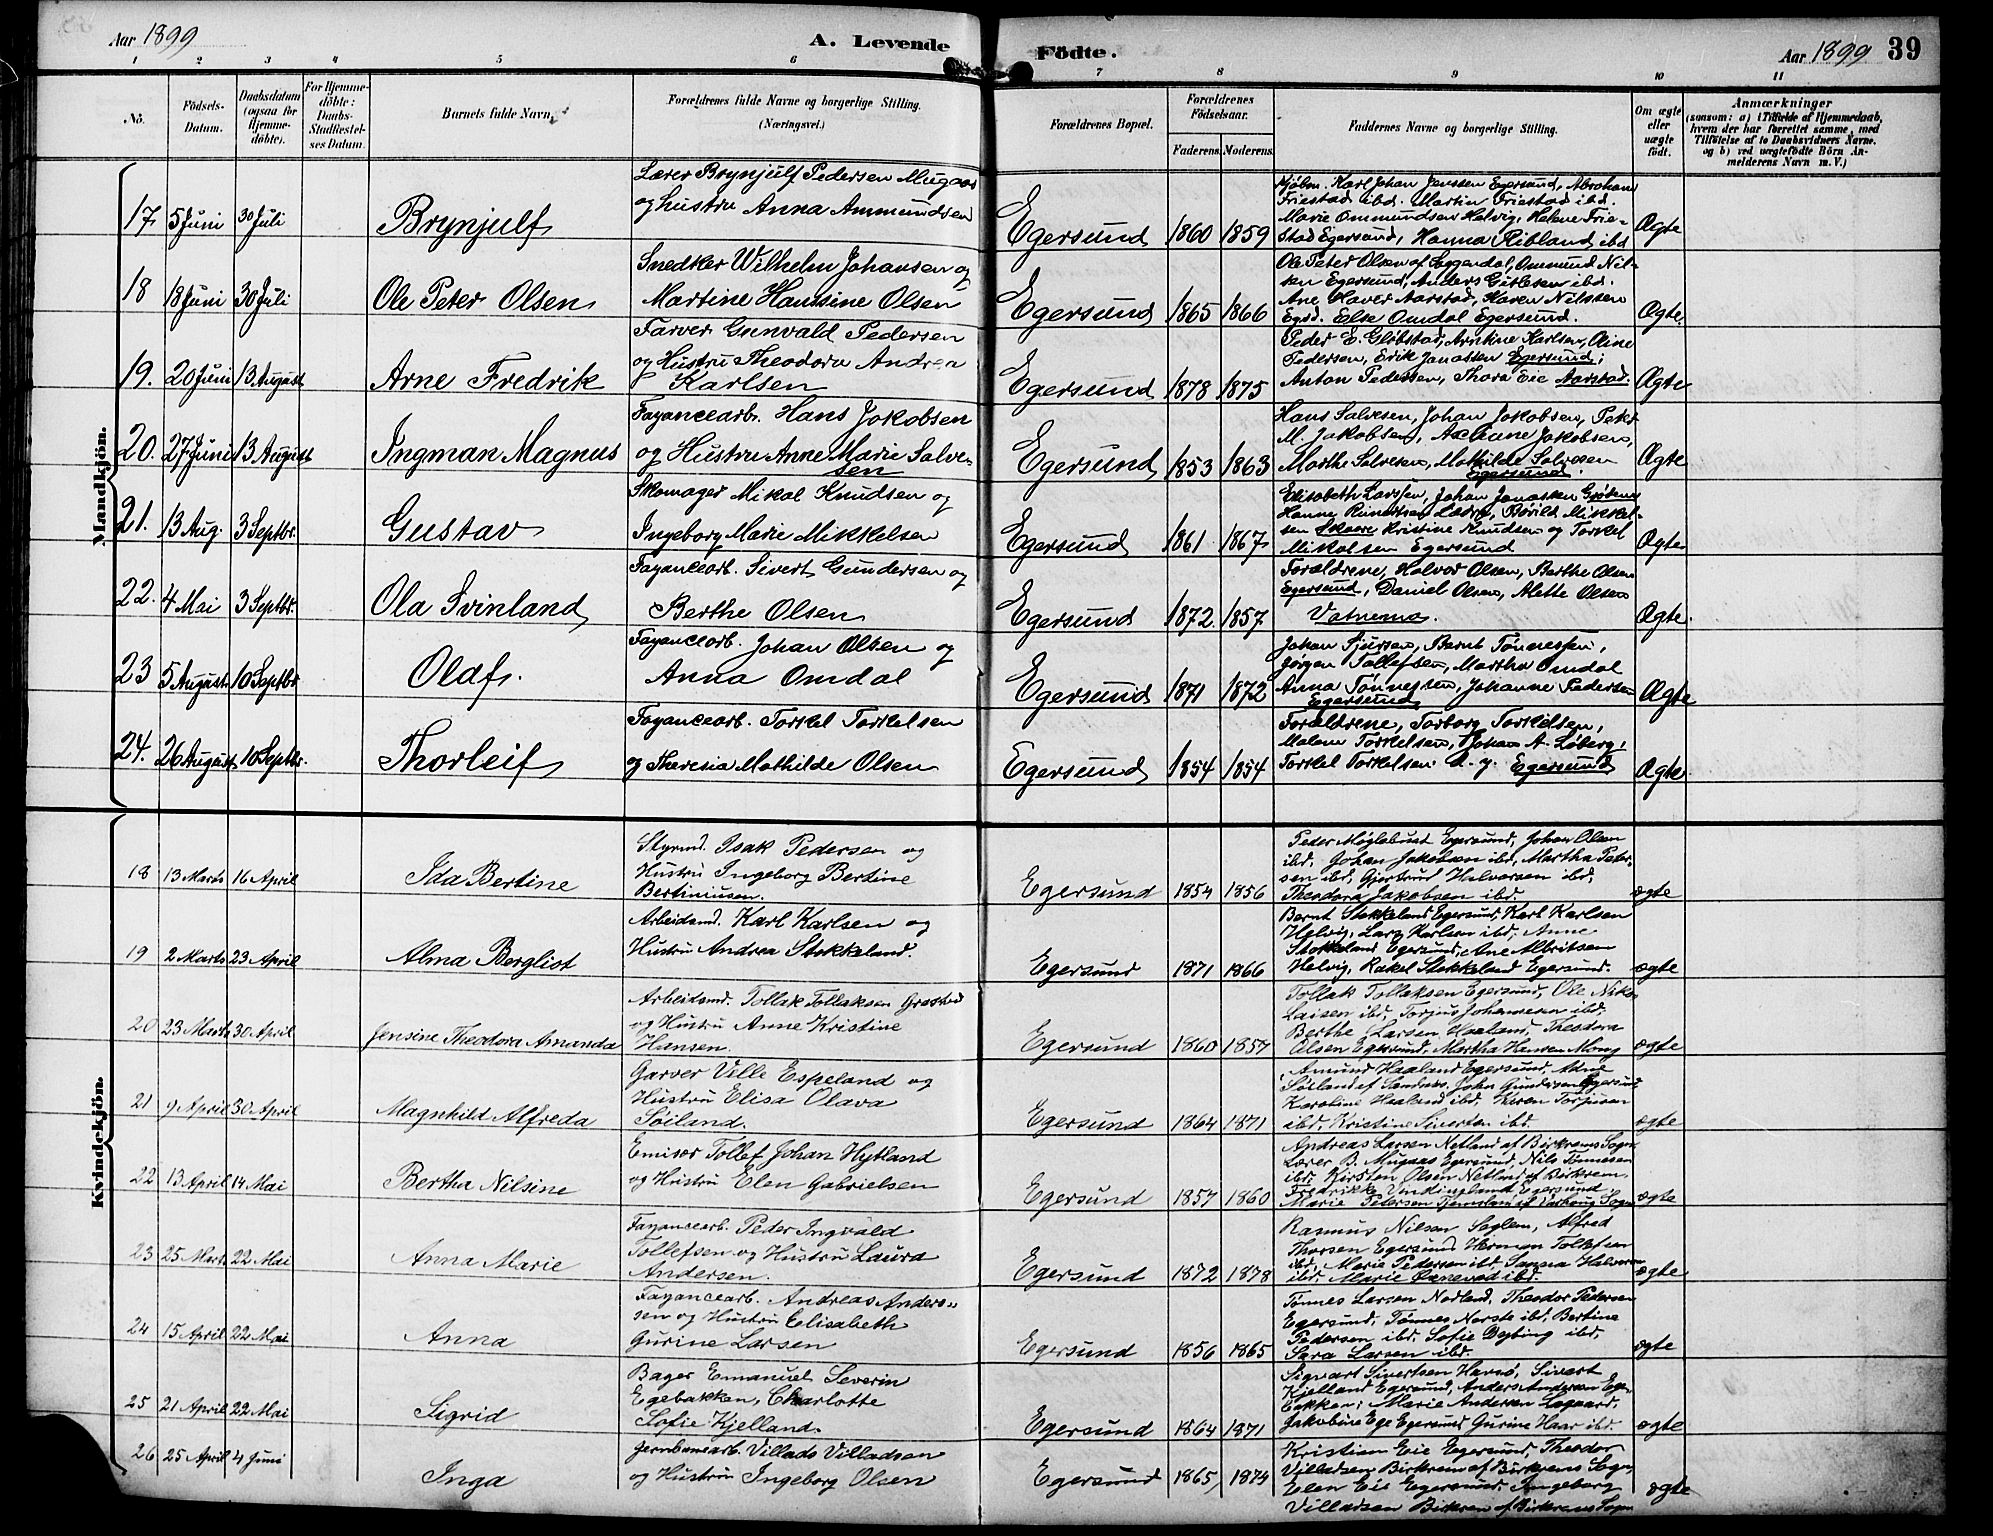 Aar 1899
A. Levende Födte.
Aar 1899 39
1 2 3 4 5 6 7 8 9 10 11
Nö.
Födsels-Datum.
Daabsdatum (ogsaa för Hjemme-döbte).
For Hjemme-döbte: Daabs-Stadfæstel-ses Datum.
Barnets fulde Navn.
Forældrenes fulde Navne og borgerlige Stilling. (Næringsvei.)
Forældrenes Bopæl.
Forældrenes Födselsaar.
Faderens. Moderens.
Faddernes Navne og borgerlige Stilling.
Om ægte eller uægte födt.
Anmærkninger
(saasom: a) i Tilfælde af Hjemmedaab, hvem der har forrettet samme, med Tilföielse af to Daabsvidners Navne, og b) ved uægtefödte Börn An-melderens Navn m. V.)
Mandkjön.
17 5 Juni 30 Juli Brynjulf
Lærer Brynjulf Pedersen Mugaas
og hustru Anna Ammundsen
Egersund 1860 1859
Kjöbm. Karl Johan Jenssen Egersund, Abraham
Friestad ibd. Martin Friestad ibd.
Marie Ommundsen Helvig, Helene Frie-
stad Egersund, Hanna Ribland ibd
Ægte
18 18 Juni 30 Juli Ole Peter Olsen
Snedker Wilhelm Johansen og
Martine Hanssine Olsen
Egersund 1865 1866
Ole Peter Olsen af Soggendal, Ommund Nil-
sen Egersund, Anders Gitlesen ibd.
Ane Haver Aarstad, Karen Nilssen
Egsd. Else Omdal Egersund.
Ægte.
19. 20 Juni 13 August Arne Fredrik
Farver Gunvald Pedersen
og Hustru Theodora Andrea
Karlsen
Egersund 1878 1875
Peder E. Glöbstad, Arntine Karlsen, Oline
Pedersen, Erik Janassen Egersund;
Anton Pedersen, Thora Eie Aarstad.
Ægte
20. 27 Juni 13 August Ingman Magnus
Fayancearb. Hans Jakobsen
og Hustru Anne Marie Salve-
sen
Egersund 1853 1863
Hans Salvesen, Johan Jakobsen, Peter
M. Jakobsen, Axeliane Jakobsen,
Marthe Salvesen, Mathilde Salvesen
Egersund.
Ægte
21. 13 Aug. 3 Septbr. Gustav
Skomager Mikal Knudsen og
Ingeborg Marie Mikkelsen
Egersund 1861 1867
Elisabeth Larssen, Johan Jonassen
Hanne Lædre, Börild Mikkel-
sen Skaare Kristine Knudsen og Torkel
Mikalsen Egersund
Ægte
22. 4 Mai 3 Septbr. Ola Svinland
Fayancearb. Sivert Gundersen og
Berthe Olsen
Egersund 1872 1857
Forældrene, Halvor Olsen, Berthe Olsen
Egersund, Daniel Olsen, Alette Olsen
Vatnemo.
Ægte.
23 5 August 10 Septbr Olaf.
Fayancearb. Johan Olsen og
Anna Omdal
Egersund 1871 1872
Johan Sjursen, Bernt Tönnesen,
Jörgen Tollefsen, Martha Omdal
Anna Tönnesen, Johanne Pedersen
Egersund
Ægte
24. 26 August 10 Septbr. Thorleif
Fayancearb. Torkel Torkelsen
og Theresia Mathilde Olsen
Egersund 1854 1854
Forældrene, Torborg Torkelsen,
Malene Torkelsen, Johan A. Löberg,
Torkel Torkelsen d. y. Egersund
Ægte
Kvindekjön.
18 13 Marts 16 April Ida Bertine
Styrmd. Isak Pedersen og
Hustru Ingeborg Bertine
Bertiniusen.
Egersund 1854 1856
Peder Möglebust Egersund, Johan Olsen
ibd, Johan Jakobsen ibd, Martha Peter-
sen ibd, Gjertrud Halvorsen ibd,
Theodora Jakobsen ibd.
ægte
19 2 Marts 23 April Alma Bergliot
Arbeidsmd. Karl Karlsen og
Hustru Andrea Stokkeland.
Egersund 1871 1866
Bernt Stokkeland Egersund, Karl Karlsen
Helvig, Lars Karlsen ibd, Anne
Stokkeland Egersund, Ane Albritsen
Helvig, Rakel Stokkeland Egersund.
ægte
20 23 Marts 30 April Jensine Theodora Amanda
Arbeidsmd. Tollak Tollaksen
og Hustru Anne Kristine
Hansen.
Egersund 1860 1857
Tollak Tollaksen Egersund, Ole Niko-
laisen ibd, Torjus Johannesen ibd.
Berthe Larsen Haaland, Theodora
Olsen Egersund, Martha Hansen Mong
ægte
21 9 April 30 April Magnhild Alfreda
Garver Ville Espeland og
Hustru Elisa Olava
Söiland.
Egersund 1864 1871
Amund Haaland Egersund,
Söiland af Sandnæs, John Gundersen Egersund
Karoline Haaland ibd, Karen Torjusen
ibd, Kristine Sivertsen ibd.
ægte
22 13 April 14 Mai Bertha Nilsine
Emisær Tollef Johan Hytland
og Hustru Elen Gabrielsen
Egersund 1857 1860
Andreas Larsen Netland af Birkrems Sogn
Lærer B. Mugaas Egersund, Nils Tönnesen
ibd, Kirsten Olsen Netland af Birkrem
Fredrikke Vindingland Egersund
Marie Petersen af Sogn
ægte
23 25 Marts 22 Mai Anna Marie
Fayancearb. Peder Ingvald
Tollefsen og Hustru Laura
Andersen.
Egersund 1872 1878
Rasmus Nilsen Soglem, Alfred
Thorsen Egersund, Herman Tollefsen
ibd, Marie Pedersen ibd, Sanna Halvorsen
ibd, Marie Oxnevad ibd.
ægte
24 15 April 22 Mai Anna
Fayancearb. Andreas Anders-
sen og Hustru Elisabeth
Gurine Larsen
Egersund 1856 1865
Tönnes Larsen Norland, Theodor Pedersen
Egersund, Tönnes Norste ibd, Bertine
Pedersen ibd, Sofie Dybing ibd,
Sara Larsen ibd.
ægte
25 21 April 22 Mai Sigrid
Bager Emanuel Severin
Egebakken, Charlotte
Sofie Kjelland.
Egersund 1864 1871
Sigvart Sivertsen Havsö, Sivert
Kjelland Egersund, Anders Andersen Ege-
bakken, Marie Andersen
Jakobine Ege Egersund, Gurine Haar ibd.
ægte
26 25 April 4 Juni Inga
Jernbanearb. Villads Villadsen
og Hustru Ingeborg Olsen
Egersund 1865 1874
Kristian Eie Egersund, Theodor
Villadsen Birkrem af Birkrems Sogn,
Elen Eie Egersund, Ingeborg
Villadsen Birkrem af Birkrems Sogn
ægte